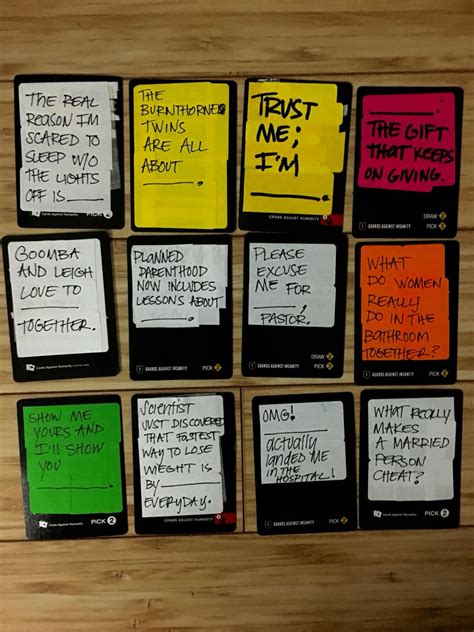 THE REAL
REASON I'M
SCARED TO
SLEEP W/O
THE LIGHTS
OFF IS ____
Cards Against Humanity
PICK 2
THE
BURNTHORNE
TWINS
ARE ALL
ABOUT
________.
TRUST
ME;
I'M
________.
CRABS ADJUST HUMIDITY
________.
THE GIFT
THAT KEEPS
ON GIVING.
DRAW 2
GUARDS AGAINST INSANITY
PICK 3
GOOMBA
AND LEIGH
LOVE TO
________
TOGETHER.
Cards Against Humanity
PLANNED
PARENTHOOD
NOW INCLUDES
LESSONS ABOUT
________.
GUARDS AGAINST INSANITY
PICK 2
PLEASE
EXCUSE
ME FOR
________,
PASTOR.
DRAW 2
GUARDS AGAINST INSANITY
PICK 3
WHAT
DO WOMEN
REALLY
DO IN THE
BATHROOM
TOGETHER?
GUARDS AGAINST INSANITY
PICK 2
SHOW ME
YOURS AND
I'll SHOW
YOU
________.
Cards Against Humanity
PICK 2
SCIENTIST
JUST DISCOVERED
THAT FASTEST
WAY TO LOSE
WIEGHT IS
BY________
EVERYDAY.
CRABS ADJUST HUMIDITY
OMG!
________
actually
landed ME
IN the
HOSPITAL!
GUARDS AGAINST INSANITY
PICK 2
WHAT REALLY
MAKES
A MARRIED
PERSON
CHEAT?
Cards Against Humanity
PICK 2